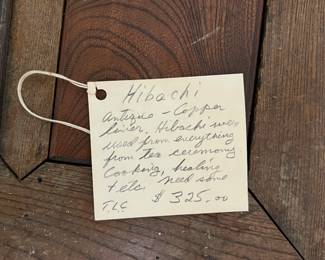 Hibachi
Antique - Copper
liner. Hibachi was
used from everything
from tea ceremony
Cooking, healing
+ etc. need some
T.L.C $ 325.00